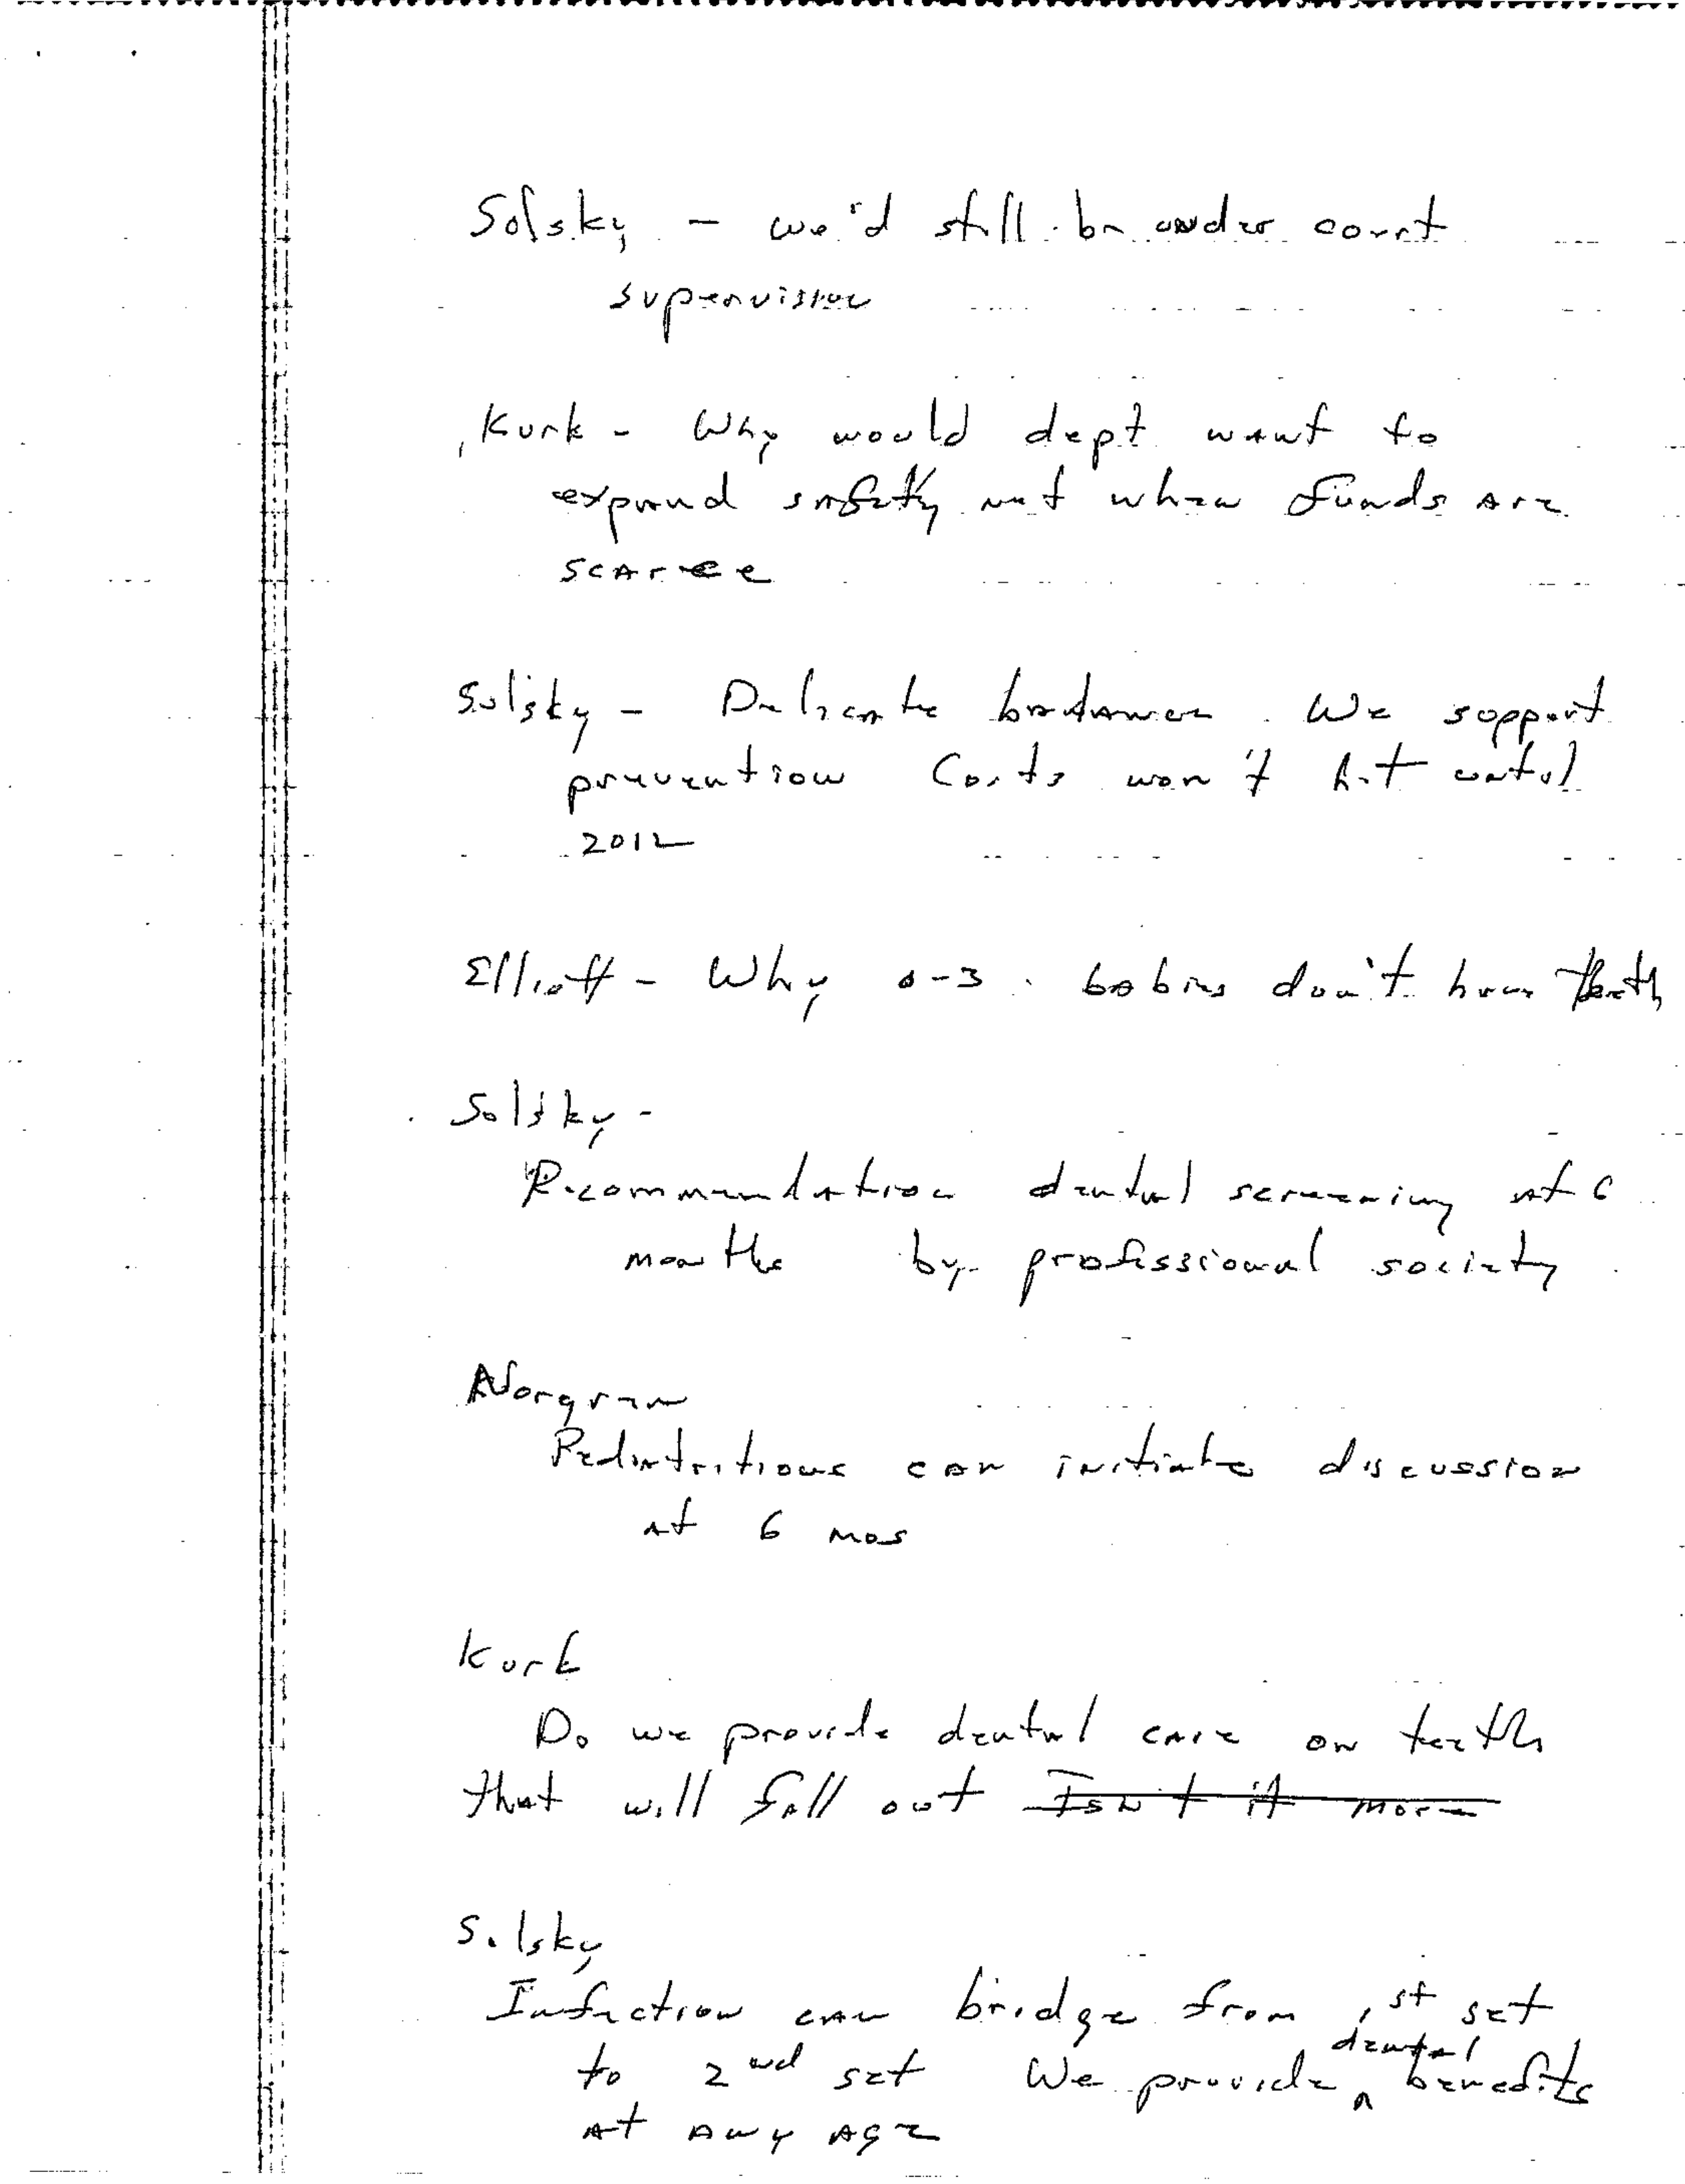 Solsky - we'd still be under court
supervision
Kurk - Why would dept want to
expand safety net when funds are
scarce
Solsky - Delicate balance. We support
prevention Costs won't hit until
2012
Elliott - Why 0-3. babies don't have teeth
Solsky -
Recommendation dental screening at 6
months by professional society
Norgren
Pediatritions can initiate discussion
at 6 mos
Kurk
Do we provide dental care on teeth
that will fall out Isn't it more
Solsky
Infection can bridge from 1st set
to 2nd set We provide dental benefits
at any age